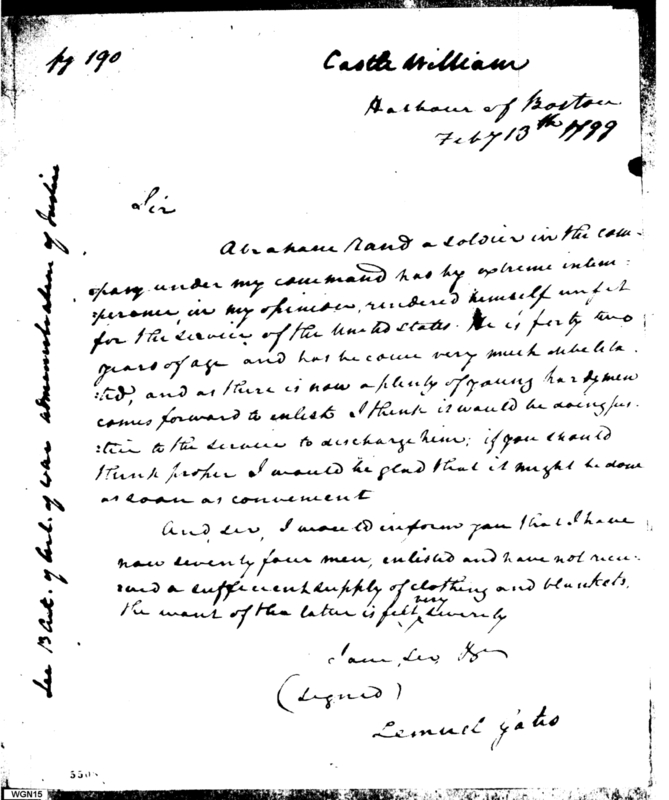 pg 190
Castle William
Harbour of Boston
Feby 13th 1799
Sir
Abraham Rand a soldier in the com-
:pany under my command has by extreme intem:
:perance, in my opinion, rendered himself unfit
for the service of the United States. He is forty two
years of age and has become very much debelita.
:ted, and as there is now a plenty of young hardy men
comes forward to enlist I think it would be doing jus.
:tice to the service to discharge him; if you should
think proper I would be glad that it might be done
as soon as convenient
And, sir, I would inform you that I have
now seventy four men, enlisted and have not recei:
:ved a sufficient supply of clothing and blankets,
the want of the latter is felt very severely
I am, Sir, &c
(signed)
Lemuel Gates
See 13 Art. of Art. of War administration of Justice
550
WGN15